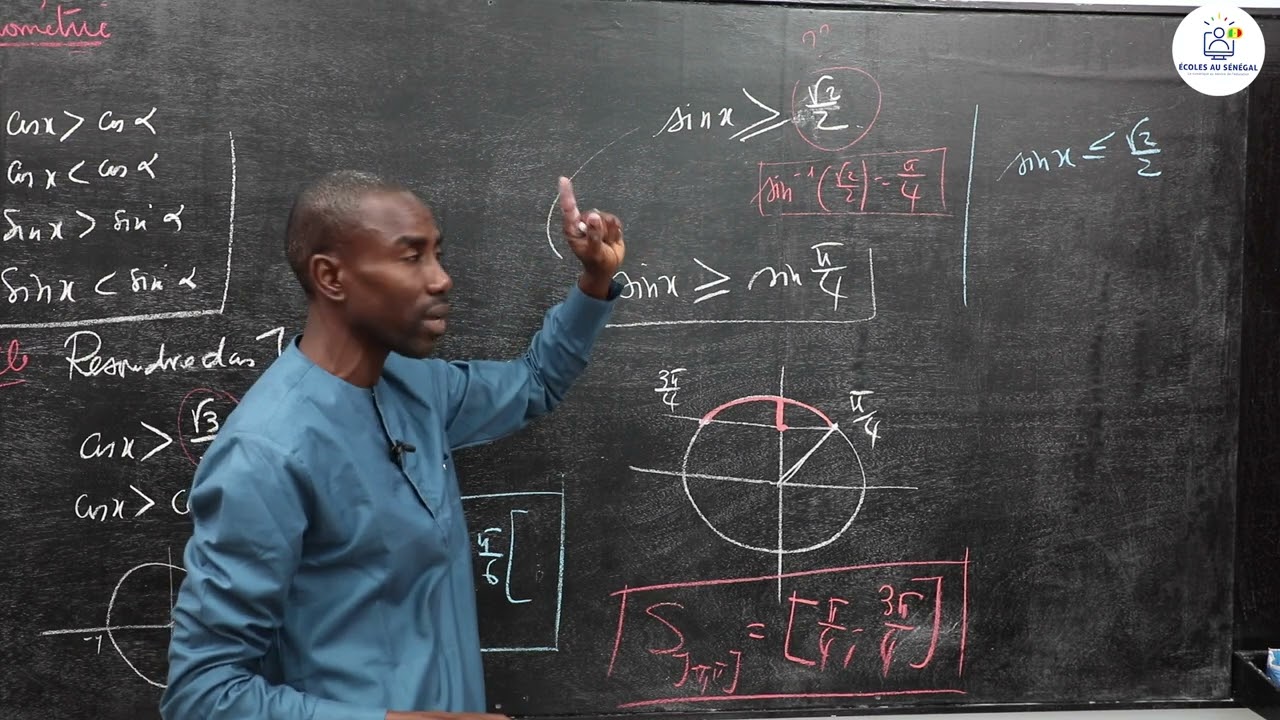 ométrie
cosx > cos α
cosx < cos α
sinx > sin α
sinx < sin α
Resoudre dans
cosx > √3
cosx >
-1
π/6 [
sinx ⩾ √2/2
sin⁻¹(√2/2) = π/4
sinx ⩾ sin π/4
3π/4
π/4
S]-π,π] = [π/4, 3π/4]
sinx ≤ √2/2
ÉCOLES AU SÉNÉGAL